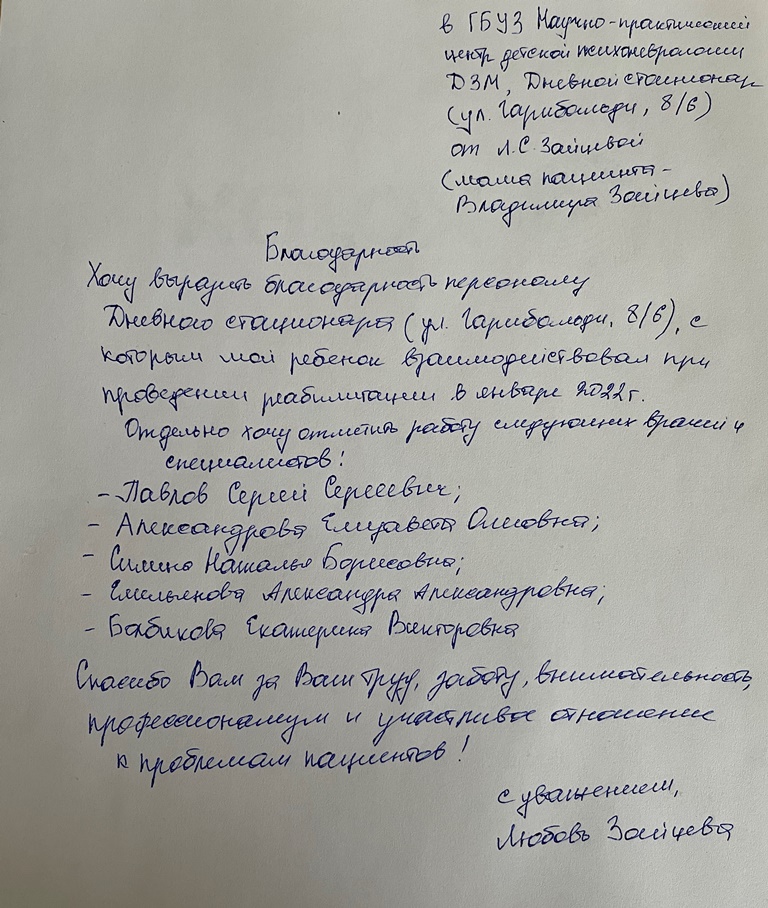 в ГБУЗ Научно-практический
центр детской психоневрологии
ДЗМ, Дневной стационар
(ул. Гарибальди, 8/6)
от Л.С. Зайцевой
(мама пациента -
Владимира Зайцева)
Благодарность
Хочу выразить благодарность персоналу
Дневного стационара (ул. Гарибальди, 8/6), с
которым мой ребенок взаимодействовал при
проведении реабилитации в январе 2022г.
Отдельно хочу отметить работу следующих врачей и
специалистов:
- Павлов Сергей Сергеевич;
- Александрова Елизавета Олеговна;
- Силина Наталья Борисовна;
- Емельянова Александра Александровна;
- Бабикова Екатерина Викторовна
Спасибо Вам за Ваш труд, заботу, внимательность,
профессионализм и участливое отношение
к проблемам пациентов!
с уважением,
Любовь Зайцева